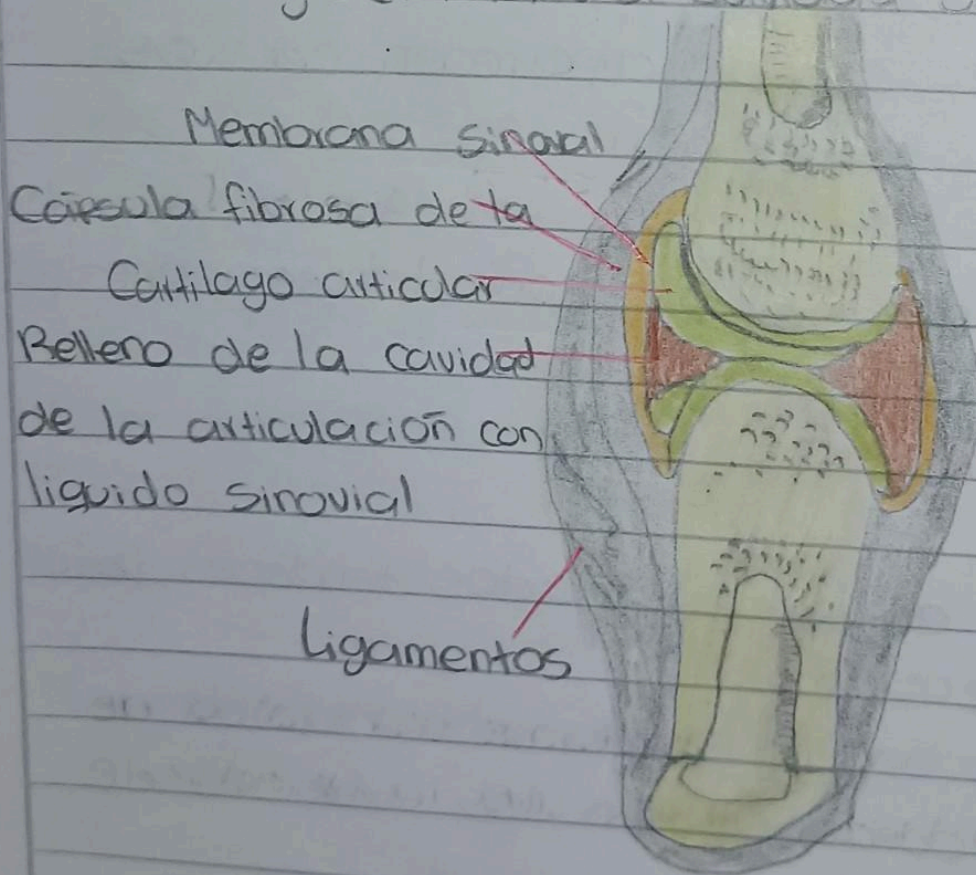 Membrana Sinoval
Cápsula fibrosa de ta
Cartilago articular
Relleno de la cavidad
de la articulación con
liquido sinovial
Ligamentos